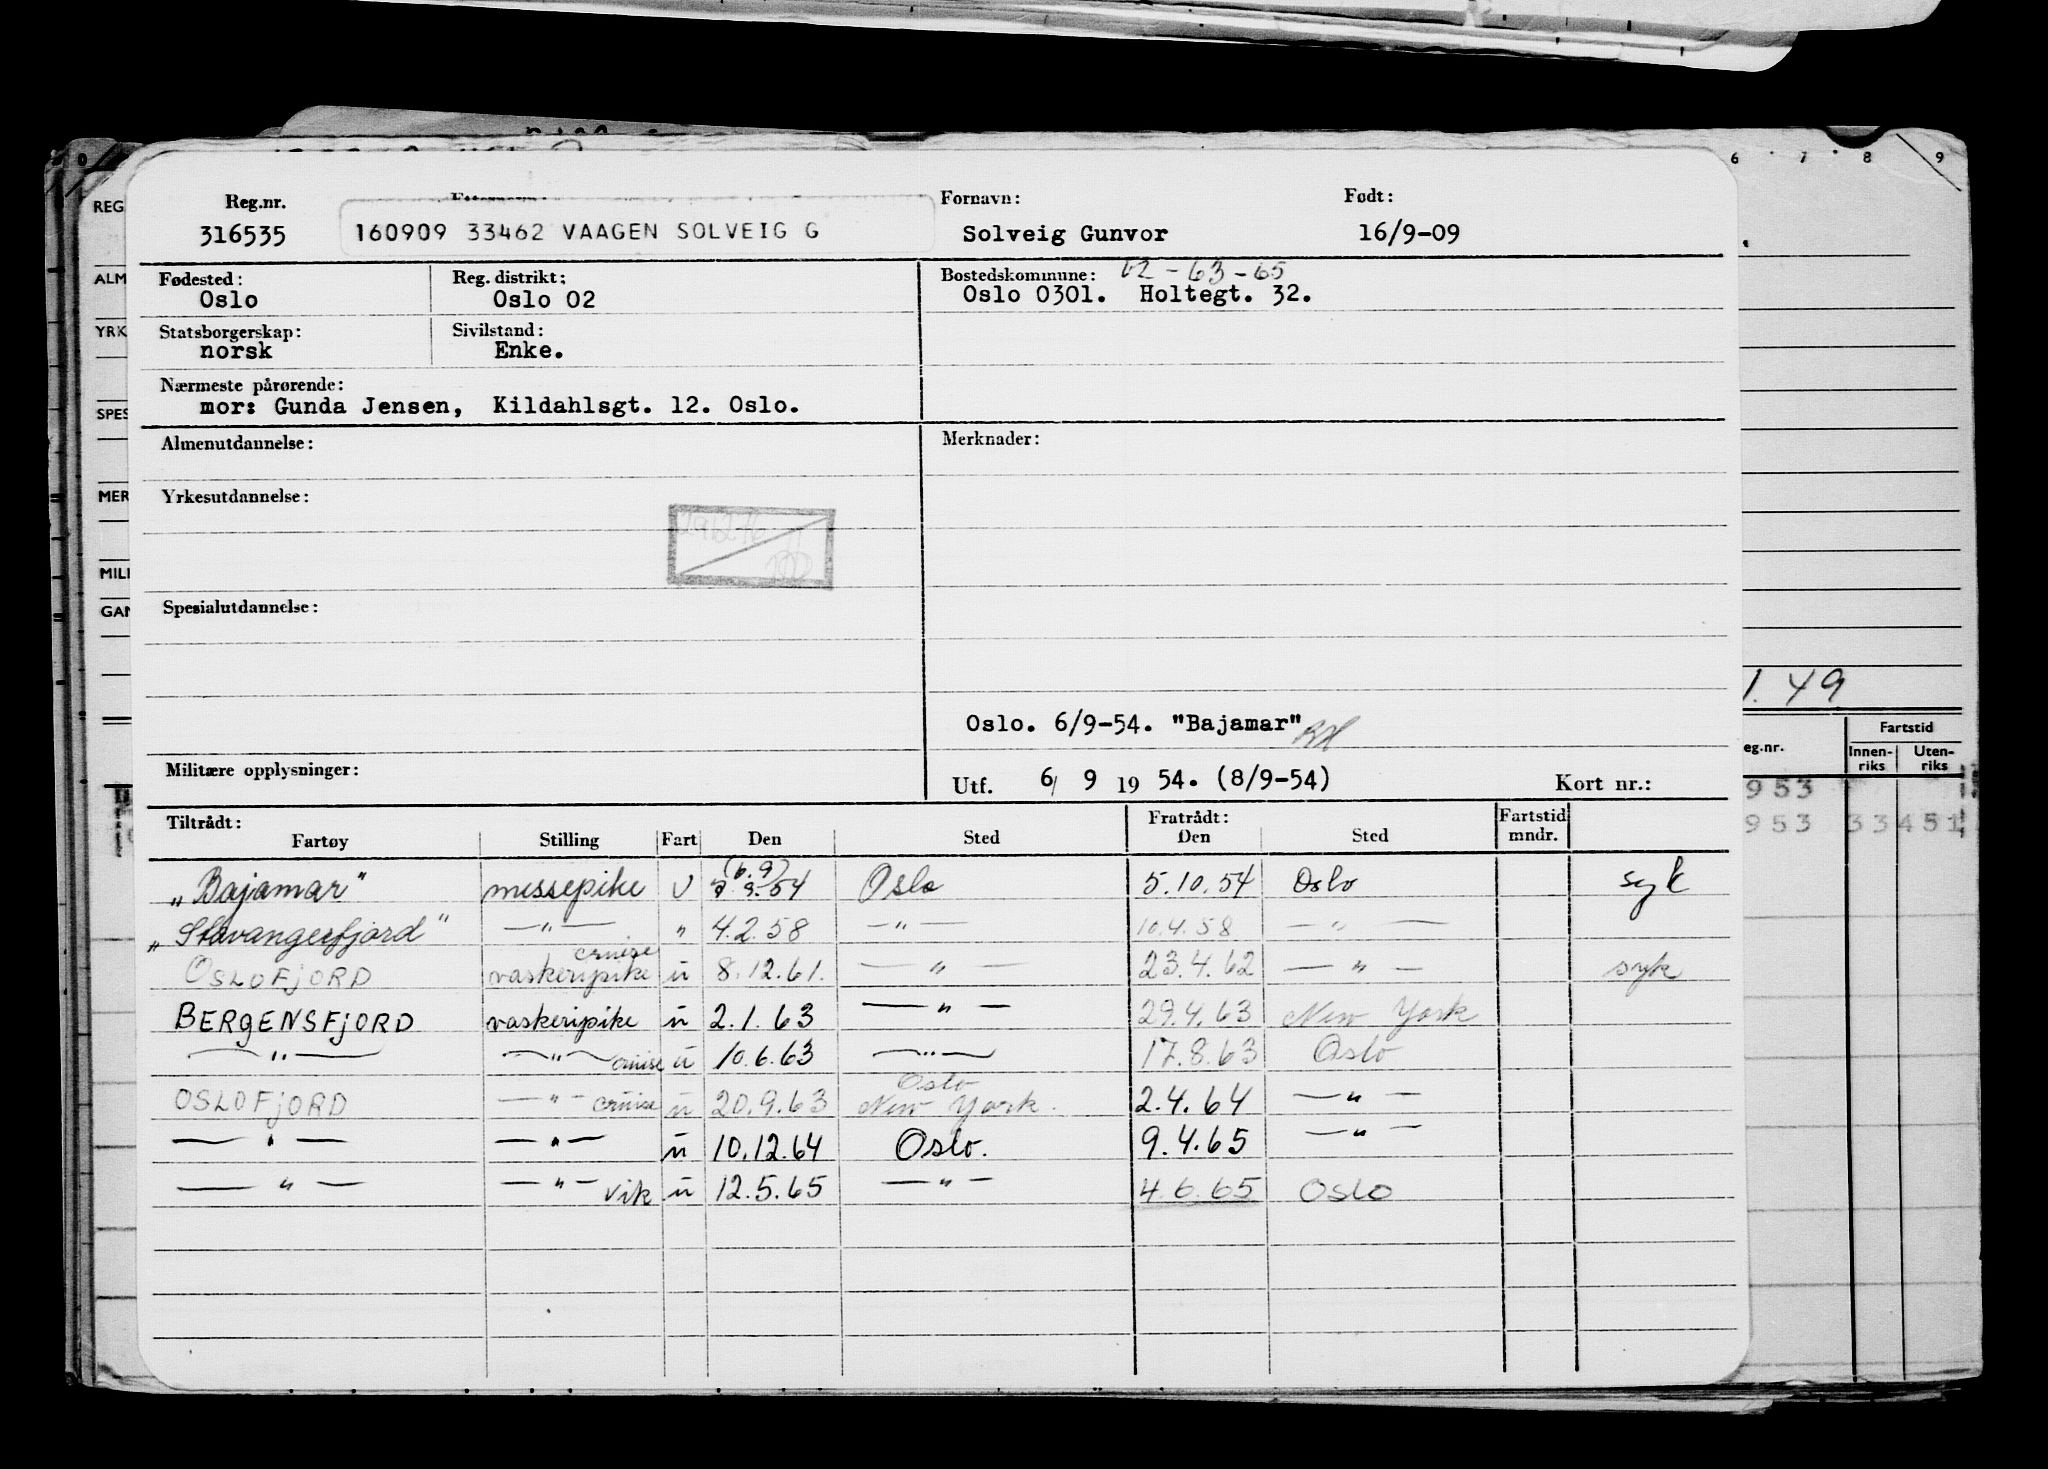 6 7 8 9
REG
Reg.nr.
Fornavn:
Født:
316535
160909 33462 VAAGEN SOLVEIG G
Solveig Gunvor
16/9-09
ALM
Fødested:
Reg. distrikt:
Bostedskommune: 62-63-65
Oslo
Oslo 02
Oslo 0301. Holtegt. 32.
YRK
Statsborgerskap:
Sivilstand:
norsk
Enke.
Nærmeste pårørende:
SPES
mor: Gunda Jensen, Kildahlsgt. 12. Oslo.
Almenutdannelse:
Merknader:
MER
Yrkesutdannelse:
MILI
GAN
Spesialutdannelse:
1.49
Oslo. 6/9-54. "Bajamar"
Militære opplysninger:
Utf. 6/ 9 19 54. (8/9-54)
Kort nr.:
eg.nr.
Fartstid
Innen-
riks
Uten-
riks
953
953 33451
Tiltrådt:
Fratrådt:
Fartstid
mndr.
Fartøy Stilling Fart Den Sted Den Sted
(6.9)
„Bajamar" messepike U 7.9.54 Oslo 5.10.54 Oslo syk
„Stavangerfjord" —"— " 4.2.58 —"— 10.4.58 —"—
cruise
OSLOFJORD vaskeripike u 8.12.61. —"— 23.4.62 —"— syk
BERGENSFJORD vaskeripike u 2.1.63 —"— 29.4.63 New York
—"— —"— cruise u 10.6.63 —"— 17.8.63 Oslo
Oslo
OSLOFJORD —"— cruise u 20.9.63 New York. 2.4.64 —"—
—"— —"— u 10.12.64 Oslo. 9.4.65 —"—
—"— —"— vik u 12.5.65 —"— 4.6.65 Oslo